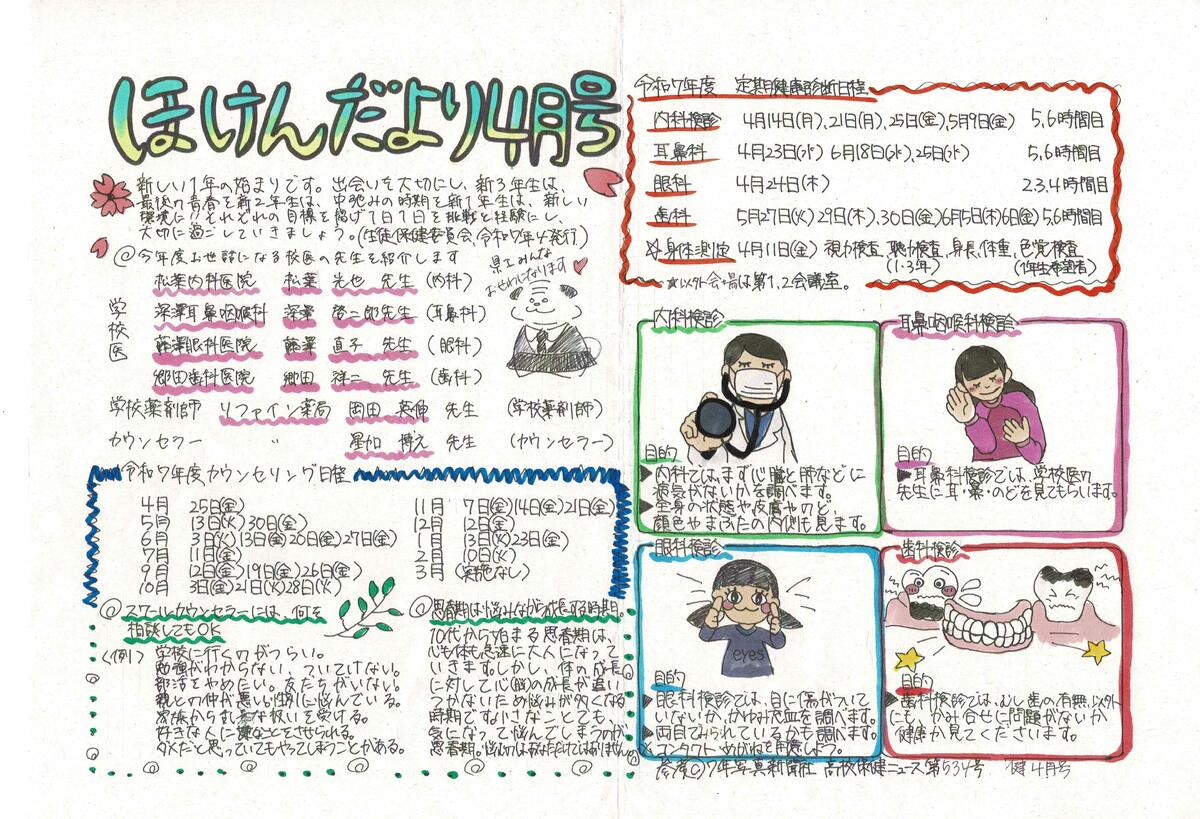 ほけんだより4月号
新しい1年の始まりです。出会いを大切にし、新3年生は、
最後の青春を新2年生は、中弛みの時期を新1年生は、新しい
環境に!!それぞれの目標を掲げ1日1日を挑戦と経験にし、
大切に過ごしていきましょう。(生徒保健委員会、令和7年4発行)
@今年度お世話になる校医の先生を紹介します
学校医
松葉内科医院 松葉 光也 先生 (内科)
深澤耳鼻咽喉科 深澤 啓二郎先生 (耳鼻科)
藤澤眼科医院 藤澤 直子 先生 (眼科)
郷田歯科医院 郷田 祥二 先生 (歯科)
学校薬剤師 リファイン薬局 岡田 英伸 先生 (学校薬剤師)
カウンセラー 〃 星加 博之 先生 (カウンセラー)
県工みんな
おせわになります
令和7年度カウンセリング日程
4月 25日(金)
5月 13日(火)30日(金)
6月 3日(火)13日(金)20日(金)27日(金)
7月 11日(金)
9月 12日(金)19日(金)26日(金)
10月 3日(金)21日(火)28日(火)
11月 7日(金)14日(金)21日(金)
12月 12日(金)
1月 13日(火)23日(金)
2月 10日(火)
3月 (実施なし)
@スクールカウンセラーには、何を
相談してもOK
(例) 学校に行くのがつらい。
勉強がわからない、ついてけない。
部活をやめたい。友だちがいない。
親との仲が悪い。性別に悩んでいる。
家族から乱暴な扱いを受ける。
好きな人に嫌なことをさせられる。
ダメだと思っていてもやってしまうことがある。
@思春期は悩みながら成長する時期。
10代から始まる思春期は、
心も体も急速に大人になって
いきます。しかし、体の成長
に対して心(脳)の成長が追い
つかないため悩みが多くなる
時期です。小さなことでも、
気になって悩んでしまうのが
思春期。悩むのはあなただけではありません。
令和7年度 定期健康診断日程
内科検診 4月14日(月)、21日(月)、25日(金)、5月9日(金) 5,6時間目
耳鼻科 4月23日(水) 6月18日(水)、25日(水) 5,6時間目
眼科 4月24日(木) 2,3,4時間目
歯科 5月27日(火) 29日(木)、30日(金)6月5日(木)6日(金) 5,6時間目
☆身体測定 4月11日(金) 視力検査、聴力検査、身長、体重、色覚検査
(1・3年) (1年生希望者)
★以外会場は第1、2会議室。
内科検診
目的
▶内科では、まず心臓と肺などに
病気がないかを調べます。
▶全身の状態や皮膚やのど、
顔色やまぶたの内側も見ます。
耳鼻咽喉科検診
目的
▶耳鼻科検診では、学校医の
先生に耳・鼻・のどを見てもらいます。
眼科検診
eyes
目的
▶眼科検診では、目に傷がついて
いないか、かゆみ充血を調べます。
▶両目でみられているかも調べます。
※コンタクト・めがねを用意しよう。
歯科検診
目的
▶歯科検診では、むし歯の有無、以外
にも、かみ合せに問題がないか
健康か見てくださいます。
参考©7年写真新聞社 高校保健ニュース第534号 健4月号